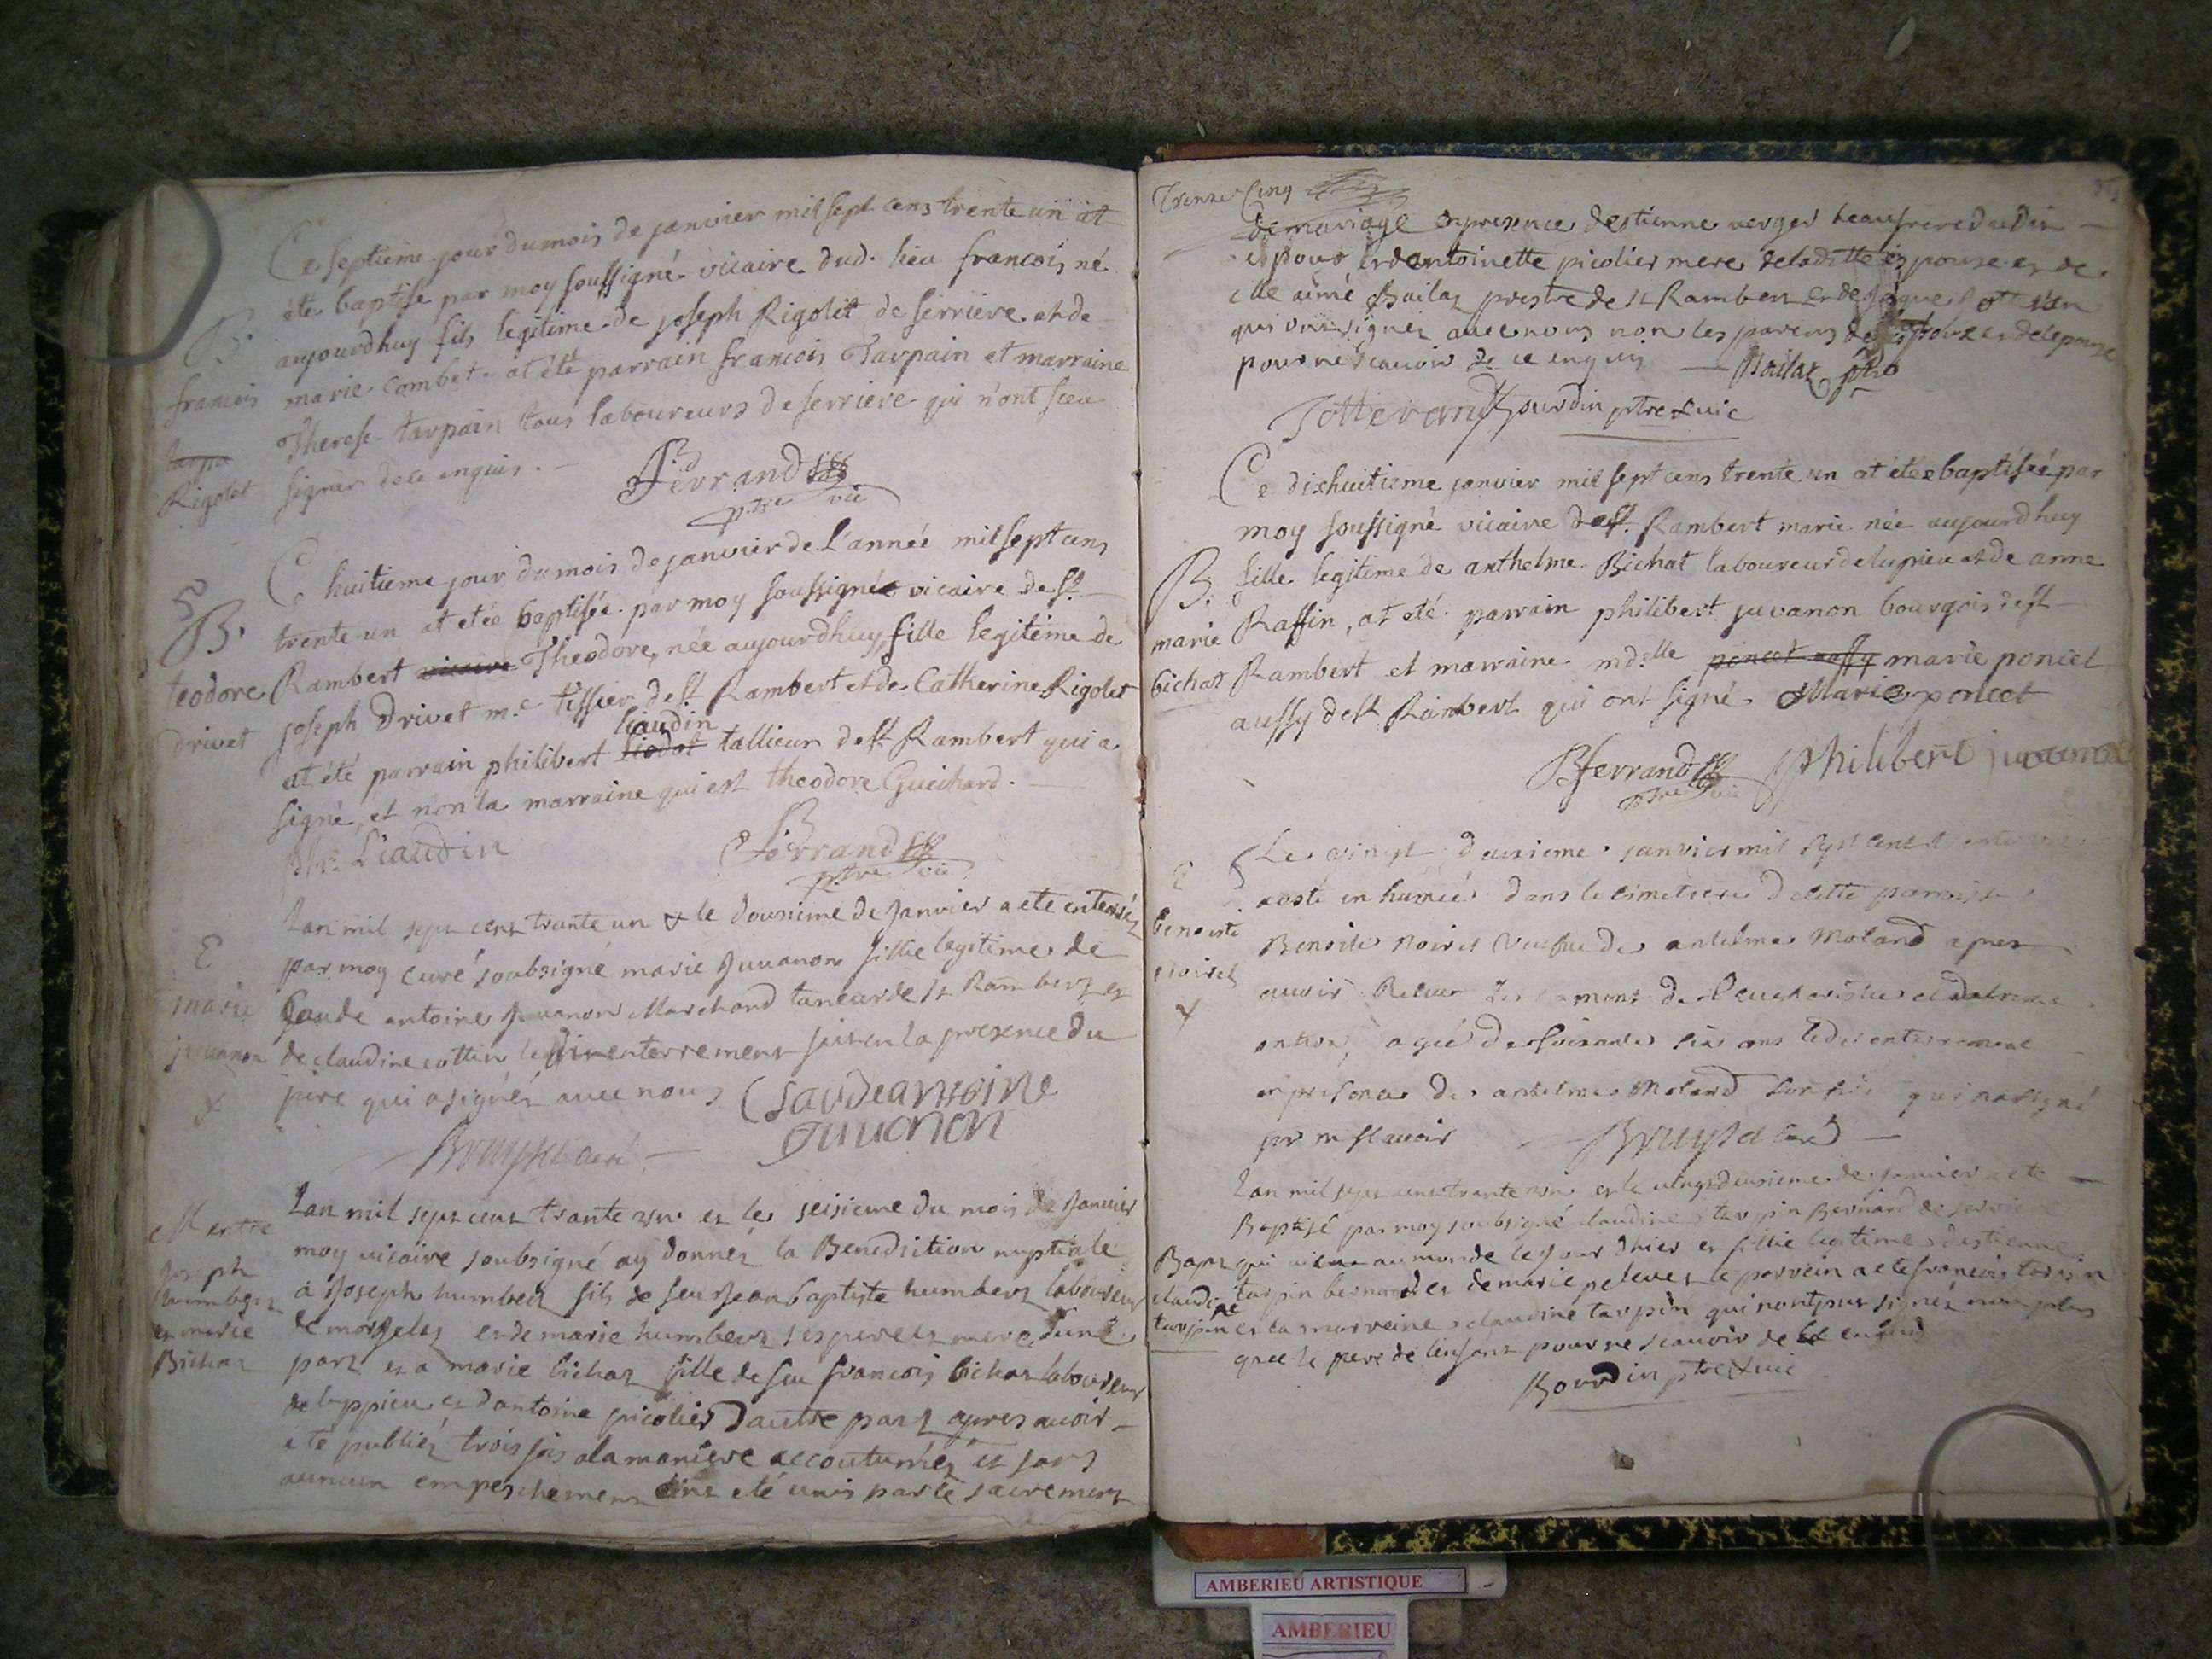 Ce septieme jour du mois de janvier mil sept cens trente un at
été baptisé par moy soussigné vicaire dud. lieu francois, né
aujourdhuy fils legitime de joseph Rigolet de serriere et de
marie combet. at été parrain francois Tarpain et marraine
Therese tarpain tous laboureurs de serriere qui n'ont sceu
signer de ce enquis.
B.
francois
tarpa
Rigolet
Ferrand
ptre vic
Ce huitieme jour du mois de janvier de l'année mil sept cens
trente un at etée baptisée par moy soussigné vicaire de st
Rambert vicaire Theodore, née aujourdhuy, fille legitime de
joseph Drivet me. tissier de st Rambert et de Catherine Rigolet
liaudin
at été parrain philibert liodat tallieur de st Rambert qui a
signé, et non la marraine qui est theodore Guichard.
5
B.
teodore
drivet
Liaudin
Ferrand
ptre vic
Lan mil sept cent trante un & le dousieme de Janvier a ete enterréz
par moy curé soubsigné marie Juuanon fillie legitime de
Caude antoine Juuanon Marchand taneur de st Rambert et
de claudine cottin le dit enterrement fait en la presence du
pere qui a signéz auec nous
E
marie
juuanon
Claude antoine
Juuanon
Bruyset curé
Lan mil sept cent trante un et le seisieme du mois de Janvier
moy uicaire soubsigné ay donnéz la Benedition nuptiale
a Joseph humbert fils de feu Jean baptiste humbert laboureur
de morgelas et de marie humbert ses pere et mere, d'une
part et a marie bichat fille de feu francois bichat laboureur
de luppieu et dantoine picolier d'autre part apres auoir
ete publiéz trois fois a la maniere accoutuméz et sans
auncun empeschement ont eté unis par le sacrement
M entre
Joseph
humbert
et marie
Bichat
Trente Cinq
de mariage en presence destienne verger beaufrere dudit
espoux, et dantoinette picolier mere de laditte espouse et de
mre aimé Bailat prestre de st Rambert et de Jaques Totteran
qui ont signéz auec nous non les parens de lespoux et delepouse
pour ne scauoir de ce enquis Bailat ptre
Totteran Bourdin ptre & uic
Ce dixhuitieme janvier mil sept cens trente un at étée baptisée par
moy soussigné vicaire de st. Rambert marie née aujourdhuy
fille legitime de anthelme Bichat laboureur de lupieu et de anne
Raffin, at eté parrain philibert juvanon bourgois de st
Rambert et marraine mdelle poncet aussy marie poncet
aussy de st Rambert qui ont signé. Marie poncet
B.
marie
bichat
Bferrand philibert juuanon
ptre vic
Le vingt deuxieme janvier mil sept cent trente un
a esté enhumée dans le cimetiere de cette paroisse
Benoite Noiret veufue de antelme Moland apres
auoir Receu les sacremens de l'eucharistie et dextreme
ontion, agée de soixante six ans ledit enterrement
en presence de antelme Moland son fils qui na signé
pr ne scauoir Bruyset curé
E
benoite
noiret
Lan mil sept cent trante un et le vingt deuxieme de janvier a ete
Baptisé par moy soubsigné claudine tarpin Bernard de serriere
qui uient au monde le jour dhier et fillie legitime destienne
tarpin bernard et de marie peleuet le parrein a ete francois tarpin
et la marreine claudine tarpin qui nont pas signéz non plus
que le pere de lenfant pour ne scauoir de ce enquis
Bapt
claudine
tarpin
Bourdin ptre & uic
AMBERIEU ARTISTIQUE
AMBERIEU